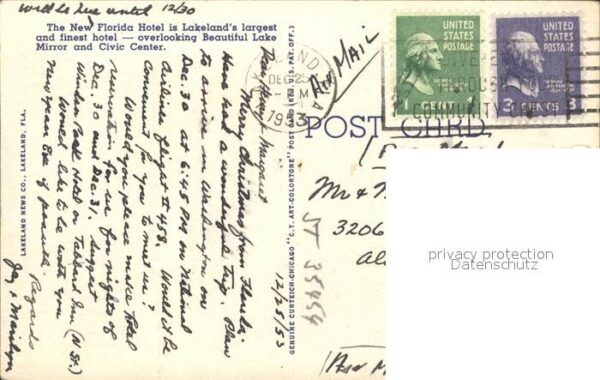 will be here until 12/30
The New Florida Hotel is Lakeland's largest
and finest hotel — overlooking Beautiful Lake
Mirror and Civic Center.
12/25/53
Dear Harry & Margaret
Merry Christmas from Florida.
Have had a wonderful trip. Plan
to arrive in Washington on
Dec. 30 at 6:45 PM on National
Airlines flight #458. Would it be
Convenient for you to meet us?
Would you please make hotel
reservation for us for nights of
Dec. 30 and Dec. 31. Suggest
Windsor Park Hotel or Tabbard Inn (N St.)
Would like to be with you
New years Eve if possible.
Regards
Jay & Marilyn
LAKELAND NEWS CO., LAKELAND, FLA.
GENUINE CURTEICH-CHICAGO "C. T. ART-COLORTONE" POST CARD (REG. U.S. PAT. OFF.)
DEC 25
1953
Air Mail
UNITED
STATES
POSTAGE
1 CENT 1
UNITED
STATES
POSTAGE
3 CENTS 3
POST CARD
Mr &
3206
Al
35454
Air M
privacy protection
Datenschutz